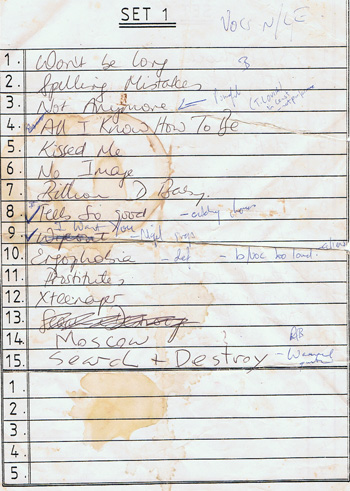 SET 1
Vocs N/LE
1. Won't be long
2. Spelling Mistakes
3. Not Anymore
4. All I Know How To Be
5. Kissed Me
6. No Image
7. Billion D Baby
8 Feels So good
I Want You
9.
10. Ergophobia - b/voc too loud
11. Prostitutes
12. Xteenager
13.
14. Moscow
15. Search + Destroy
1.
2.
3.
4.
5.